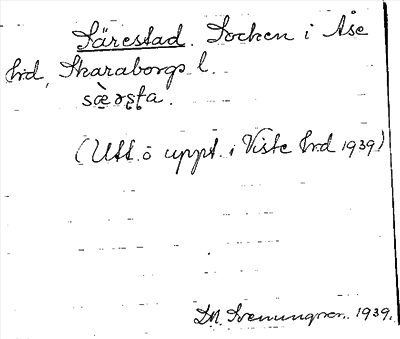 Särestad. Socken i Åse
hrd, Skaraborgs l.
sæ̀rəsta.
(Utt. o uppt. i Viste hrd 1939)
D.N. Svenungsson. 1939.